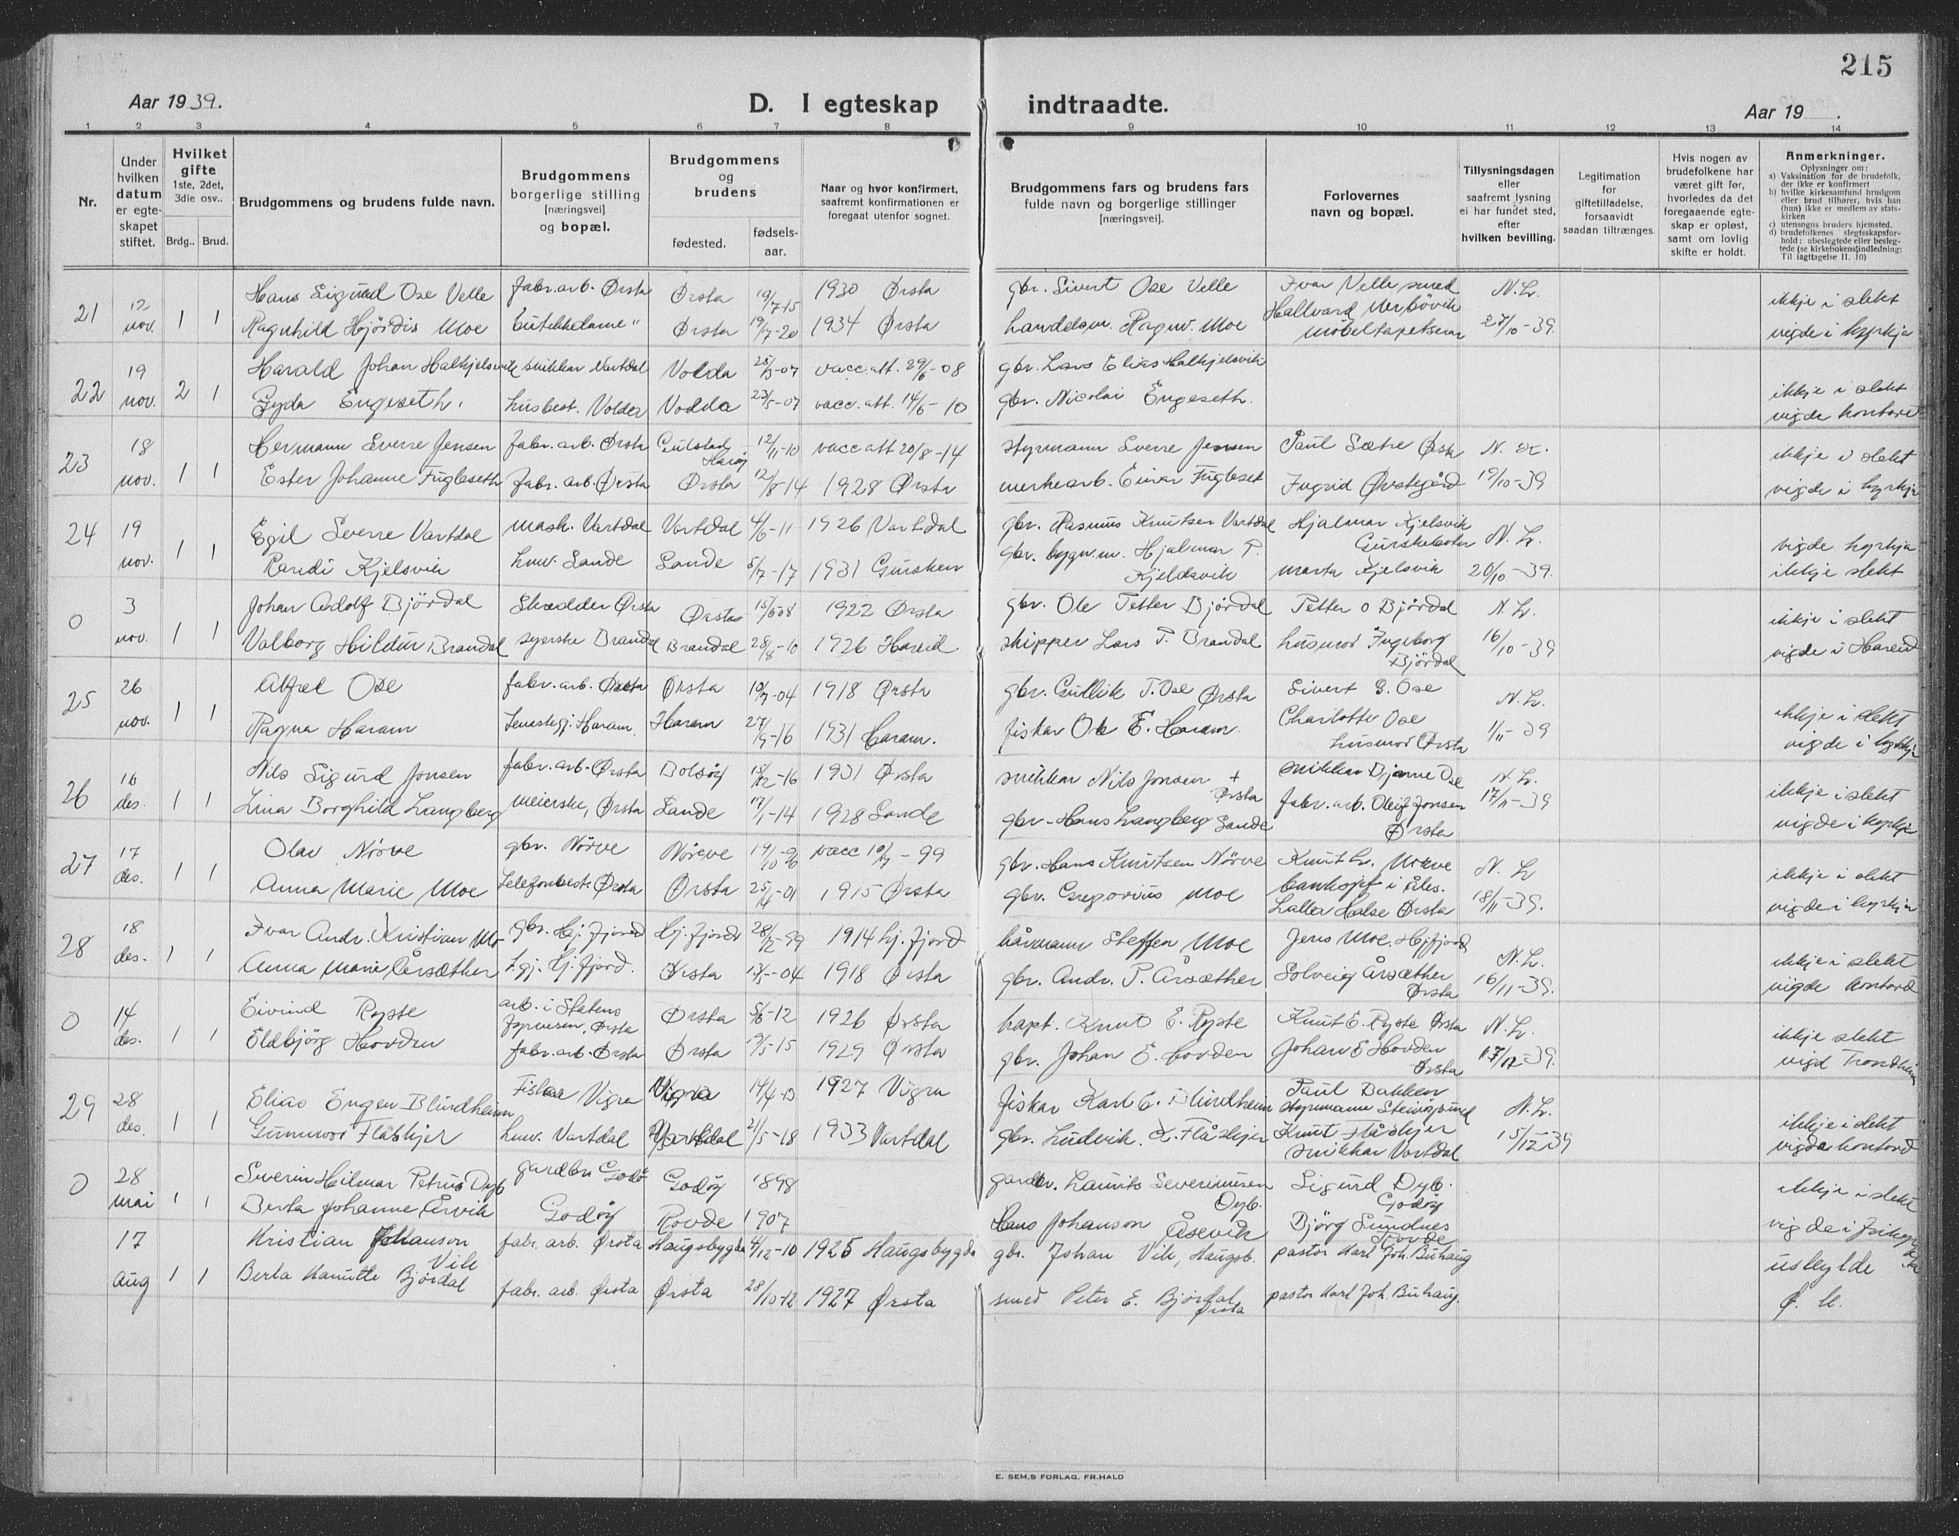 215
Aar 1939.
D. I egteskap indtraadte.
Aar 19 .
1 2 3 4 5 6 7 8 9 10 11 12 13 14
Nr.
Under hvilken datum er egteskapet stiftet.
Hvilket gifte 1ste, 2det, 3die osv..
Brdg.. Brud.
Brudgommens og brudens fulde navn.
Brudgommens borgerlige stilling [næringsvei] og bopæl.
Brudgommens og brudens
fødested.
fødselsaar.
Naar og hvor konfirmert, saafremt konfirmationen er foregaat utenfor sognet.
Brudgommens fars og brudens fars fulde navn og borgerlige stillinger [næringsvei].
Forlovernes navn og bopæl.
Tillysningsdagen eller saafremt lysning ei har fundet sted, efter hvilken bevilling.
Legitimation for giftetilladelse, forsaavidt saadan tiltrænges.
Hvis nogen av brudefolkene har været gift før, hvorledes da det foregaaende egteskap er opløst, samt om lovlig skifte er holdt.
Anmerkninger.
Oplysninger om:
a) Vaksination for de brudefolk, der ikke er konfirmert
b) hvilke kirkesamfund brudgom eller brud tilhører, hvis han (hun) ikke er medlem av statskirken
c) utensogns bruders hjemsted.
d) brudefolkenes slegtsskapsforhold: ubeslegtede eller beslegtede (se kirkebokens indledning: Til iagttagelse II. 10)
21 12 nov. 1 1
Hans Sigurd Ose Velle fabr.arb. Ørsta Ørsta 19/7-15 1930 Ørsta gbr. Sivert Ose Velle Ivar Velle, smed N.L. ikkje i slekt
Ragnhild Hjördis Moe Butikkdame " Ørsta 19/7-20 1934 Ørsta handelsm. Ragnv. Moe Hallvard møbeltapetserer 27/10-39. vigde i kyrkja
22 19 nov. 2 1
Harald Johan Halkjelsvik snikkar Vartdal Volda -07 vacc.att. 29/6-08 gbr. Lars Elias Halkjelsvik ikkje i slekt
Gyda Engeseth. husbest. Volda Vodda 23/5-07 vacc.att. 14/6-10 gbr. Nicolai Engeseth. vigde kontoret
23 18 nov. 1 1
Hermann Sverre Jensen fabr.arb. Ørsta 12/11-10 vacc att 20/8-14 styrmann Sverre Jensen Paul Sætre Ørsta N. ikkje i slekt
Ester Johanne Fugleseth fabr. arb. Ørsta Ørsta 12/8-14 1928 Ørsta Einar Fugleset Ingrid Ørstegård 19/10-39 vigde i kyrkja
24 19 nov. 1 1
Egil Sverre Vartdal mask. Vartdal Vartdal 4/6-11 1926 Vartdal gbr. Rasmus Knutsen Vartdal Hjalmar Kjelsvik Gurskebotn N.L. vigde kyrkja
Randi Kjelsvik huv. Sande Sande 5/7-17 1931 Gursken gbr. bygn.m. Hjalmar P. Kjeldsvik Marta Kjelsvik 20/10-39. ikkje slekt
0 3 nov. 1 1
Johan Adolf Bjørdal Skredder Ørsta Ørsta 15/6 08 1922 Ørsta gbr. Ole Petter Bjørdal Petter O Bjørdal N.L. ikkje i slekt
Valborg Hildur Brandal syerske Brandal Brandal 28/8-10 1926 Hareid skipper Lars P. Brandal husmor Ingeborg Bjørdal 16/10-39 vigde i Hareid
25 26 nov. 1 1
Alfred Ose fabr.arb. Ørsta Ørsta 10/7-04 1918 Ørsta gbr. Gullik T. Ose Ørsta Sivert G. Ose N.L. ikkje i slekt
Ragna Haram Tenestegj. Haram. Haram 27/9-16 1931 Haram. fiskar Ole E. Haram. Charlotte Ose husmor Ørsta 1/11-39 vigde i kyrkja
26 16 des. 1 1
Nils Sigurd Jonsen fabr.arb. Ørsta Bolsøy 15/12-16 1931 Ørsta snikkar Nils Jonsen + Ørsta snikkar Bjarne Ose N.L. ikkje i slekt
Lina Borghild Langberg meierske, Ørsta Sande 17/1-14 1928 Sande gbr. Hans Langberg Sande fabr.arb. Oleif Jonsen Ørsta 17/11-39 vigde i kyrkja
27 17 des. 1 1
Olav Nørve gbr. Nørve Nørve 14/10-96 vacc -99 gbr. Hans Knutsen Nørve Knut H. Nørve banksjef i Åles. N.L ikkje i slekt
Anna Marie Moe Telefonbest. Ørsta Ørsta 25/4-01 1915 Ørsta gbr. Gregorius Moe Lalla Halse Ørsta 18/11-39. vigde i kyrkja
28 18 des. 1 1
Ivar Andr. Kristian Mo gbr. Hj.fjord Hj.fjord 28/12-99 1914 Hj.fjord Steffen Moe Jens Moe, Hj.fjord N.L. ikkje i slekt
Anna Marie Årsæther T.gj. Hj.fjord. Ørsta -04 1918 Ørsta gbr. Andr. P. Årsæther Solveig Årsæther Ørsta 16/11-39. vigde kontord
0 14 des. 1 1
Eivind Ryste arb. i Statens Ørsta Ørsta 5/6-12 1926 Ørsta kapt. Knut E. Ryste Knut E. Ryste Ørsta N.L. ikkje slekt
Eldbjörg Hovden fabr.arb. Ørsta Ørsta 19/5-15 1929 Ørsta gbr. Johan E. Hovden Johan E Hovden Ørsta -39. vigd Trondheim
29 28 des. 1 1
Elias Eugen Blindheim Fiskar Vigra Vigra 14/4-13 1927 Vigra fiskar Karl E. Blindheim Paul Bakken styrmann N.L. ikkje i slekt
Gunnvor Flåskjer huv. Vartdal Vartdal 21/5-18 1933 Vartdal gbr. Ludvik K. Flåskjer Knut Flåskjer snikkar Vartdal 15/12-39 vigde kontord
0 28 mai 1 1
Severin Hilmar Petrus Dyb gardbr. Godø Godøy 1898 gardbr. Laurits Severinusen Dyb. Sigurd Dyb. Godøy ikkje i slekt
Berta Johanne Åsvik Godøy Rovde 1907 Hans Johanson Åsevik Björg Sundnes Rovde vigde i
17 aug 1 1
Kristian Johanson Vik fabr. arb. Ørsta Haugsbygda 4/12-10 1925 Haugsbygda gbr. Johan Vik, Haugsb. pastor Karl Joh. Buhaug uskylde
Berta Kamitte Bjørdal fabr. arb. Ørsta Ørsta 28/10-12 1927 Ørsta smed Peter E. Bjørdal Ørsta pastor Karl Joh. Buhaug.
E. SEM,S FORLAG, FR.HALD